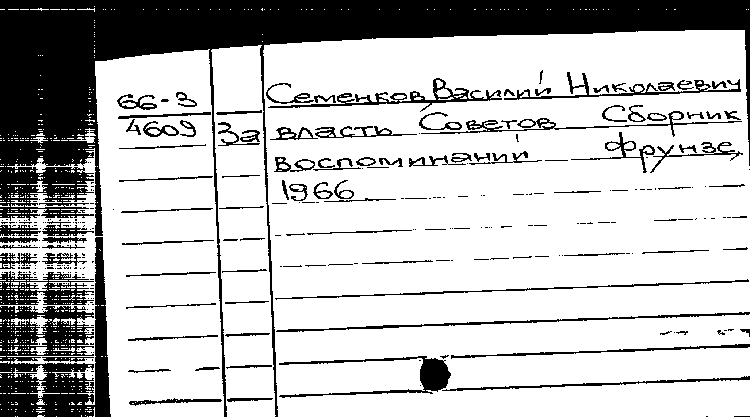 66-3 Семенков Василий Николаевич
4609 За власть Советов Сборник
воспоминаний Фрунзе,
1966